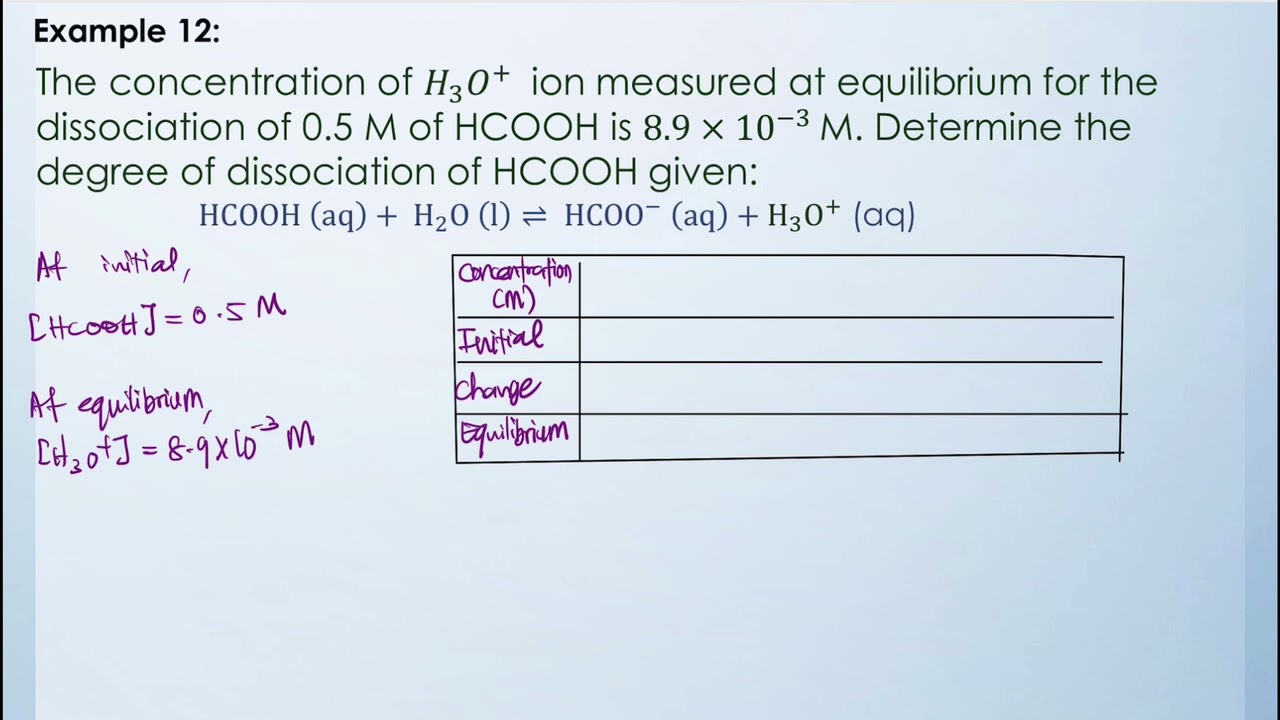 Example 12:
The concentration of H₃O⁺ ion measured at equilibrium for the
dissociation of 0.5 M of HCOOH is 8.9 × 10⁻³ M. Determine the
degree of dissociation of HCOOH given:
HCOOH (aq) + H₂O (l) ⇌ HCOO⁻ (aq) + H₃O⁺ (aq)
At initial,
[HCOOH] = 0.5 M
At equilibrium,
[H₃O⁺] = 8.9 × 10⁻³ M
Concentration
(M)
Initial
Change
Equilibrium